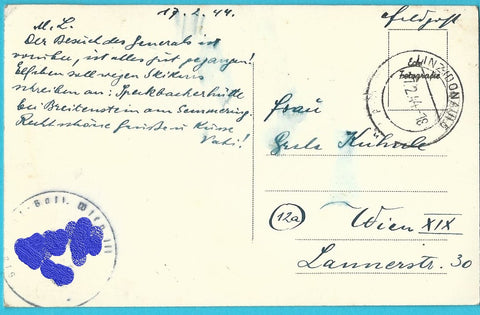 17.2.44.
M. L.
Der Besuch des Generals ist
vorüber, ist alles gut gegangen!
Elfchen soll wegen Skikurs
schreiben an: Speckbacherhütte
bei Breitenstein am Semmering.
Recht schöne Grüße u Küsse
Vati!
Feldpost
Echte
Fotografie
LINZ (DONAU)
17.2.44.-18
Frau
Kuhnle
12a
Wien XIX
Lannerstr. 30
Batl. Wien III